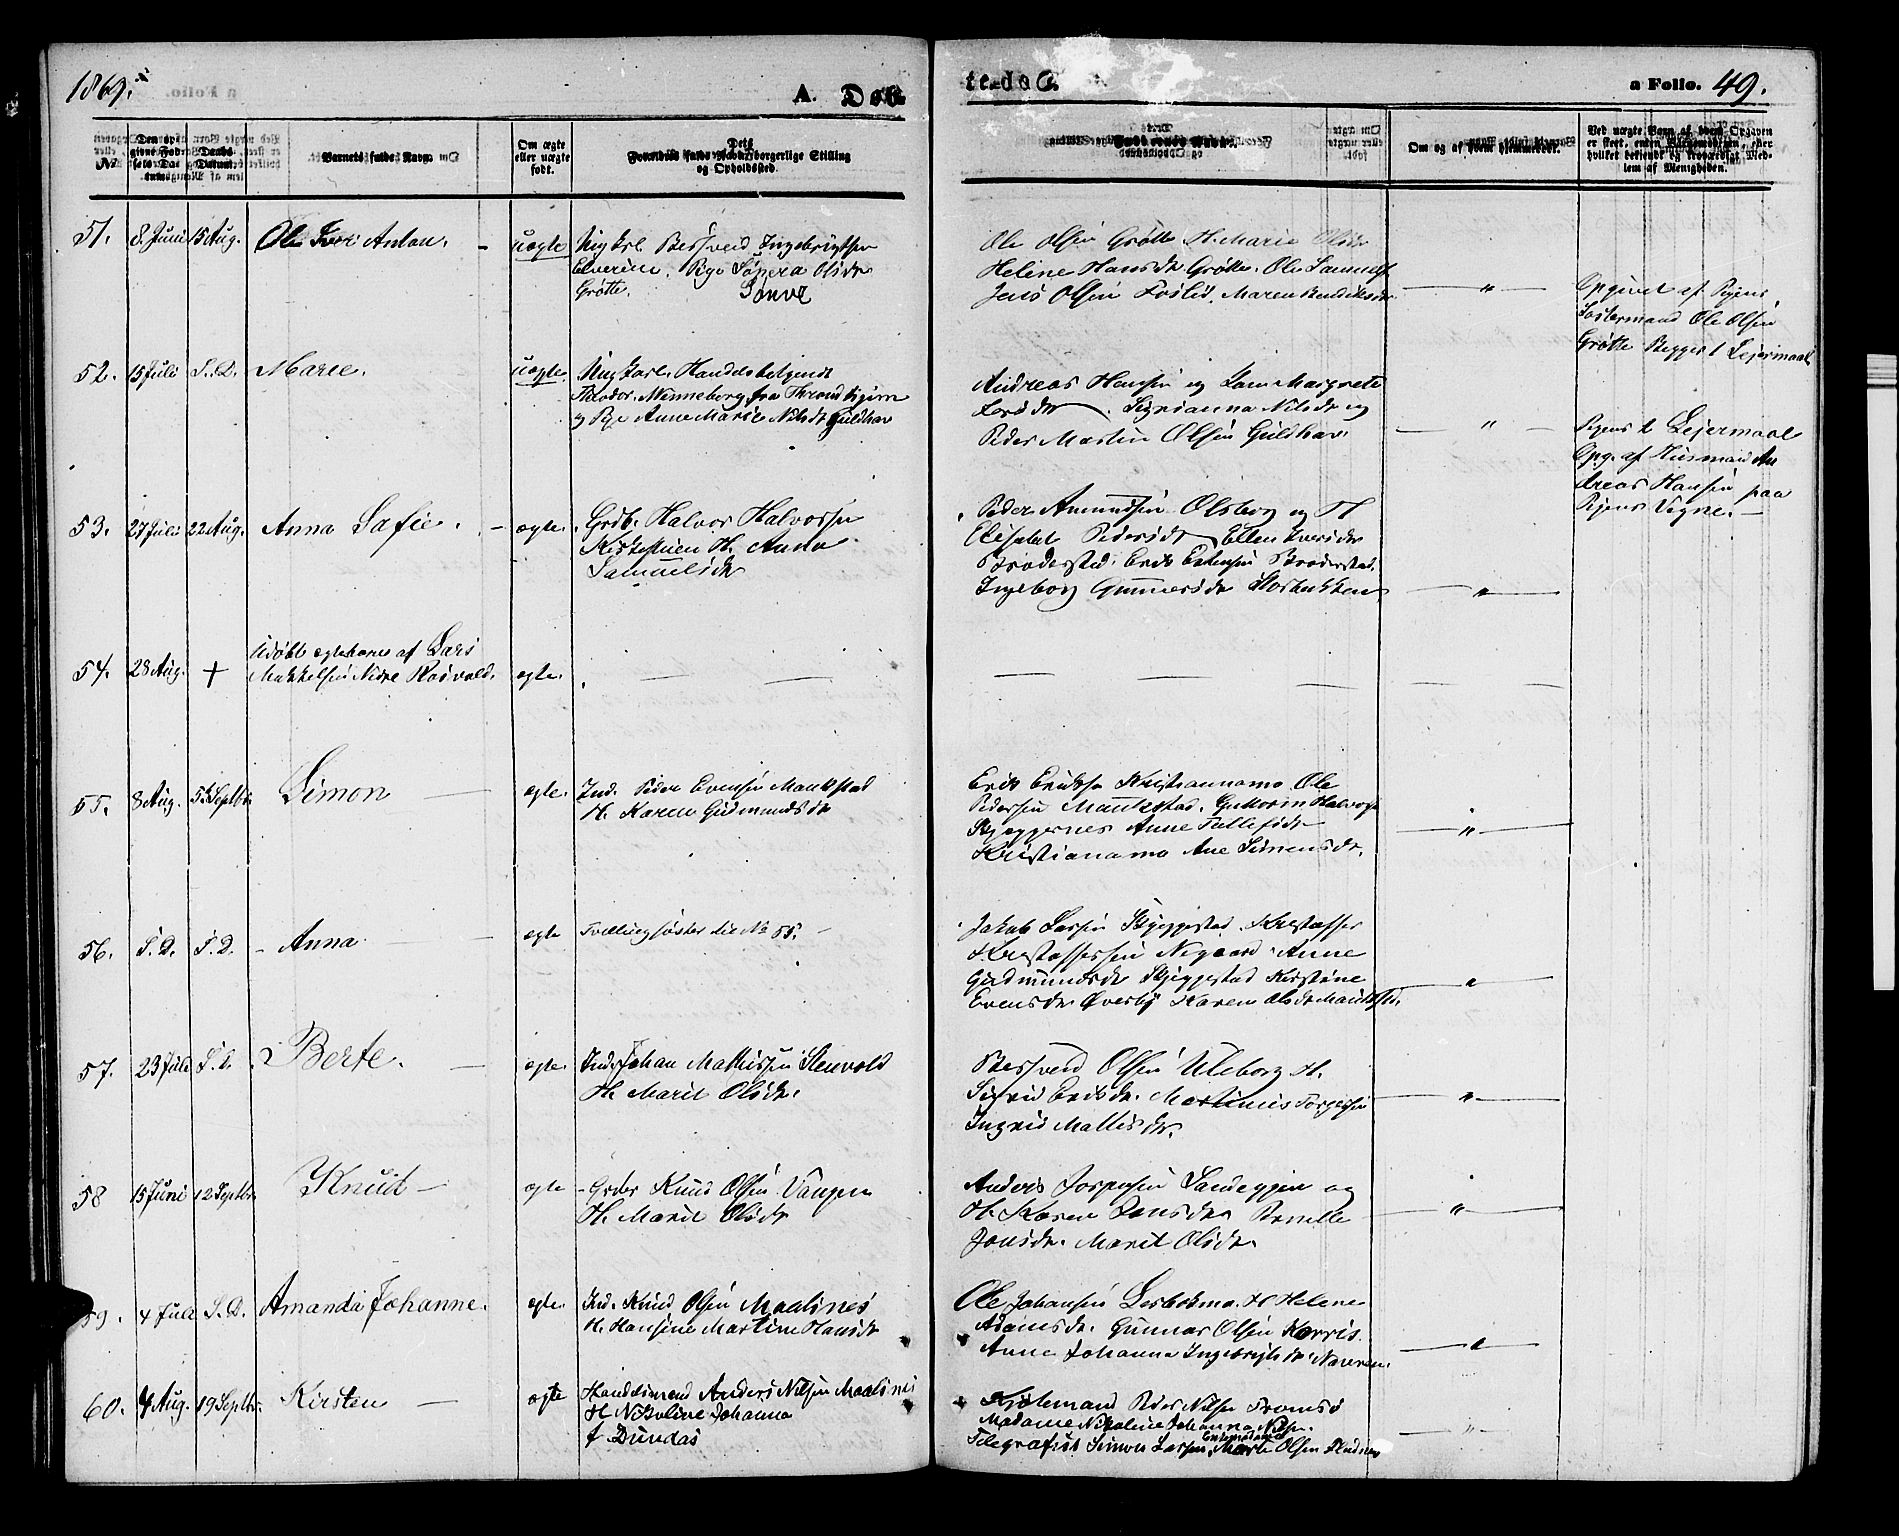 1869.
A. Døb
te.
a Folio. 49.
No
Den opgivne Fødselsdatum.
Daabs Datum.
Barnets fulde Navn.
Om ægte eller uægte født.
Forældrenes fulde Navn, borgerlige Stilling og Opholdssted.
Om og af hvem hjemmedøbt.
Ved uægte Børn af hvem Opgaven er skeet, enten Barnemoderen, eller hvilket bekjendt og troværdigt Medlem af Menigheden.
51. 8 Juni 15 Aug. Ole Iver Anton. uægte
Ungkrl. Bersvend Ingebrigtsen
Elverum. Pige Olsdr
Grøtte.
Ole Olsen Grøtte H. Marie Olsdr
Helene Hansdr Grøtte. Ole
Jens Olsen Foslid. Maren
"
Opgivet af Pigens
Ole Olsen
Grøtte Begges 1 Lejermaal
52. 15 Juli S. D. Marie. uægte.
Ungkarl. Handelsbetjent
Theodor. Wenneborg fra Throndhjem
og Pige Anne Marie Nilsdr Guldhav
Andreas Hansen og
Larsdr. Nilsdr og
Peder Martin Olsen Guldhav
"
Pigens 2 Lejermaal
Opg. af Husmand An
dreas Hansen paa
Pigens Vegne.
53. 27 Juli 22 Aug. Anna Safie. ægte.
Grdb. Halvor Halvorsen
Kirkemoen H. Anna
Samuelsdr
Peder Amundsen Olsborg og H
Elisabet Pedersdr Ellen Iversdr
Broderstad. Erik Estensen Broderstad.
Ingeborg Gunnersdr Storbakken
"
54. 28 Aug. + Udøbt ægtebarn af Lars
Mikkelsen Nedre Rosvold. ægte.
55. 8 Aug. 5 Septbr. Simon ægte.
Ind. Peder Evensen Maukstad
H. Karen Gudmundsdr
Erik Eriksen Kristianamo Ole
Pedersen Maukstad. Guttorm Halvors.
Skjæggesnes Anne Tollefsdr
Kristianamo Ane Simensdr.
"
56. S. D. S. D. Anna ægte
Tvillingsøster til No 55.
Jakob Larsen Skjeggestad. Kristoffer
Kristoffersen Nygaard Anne
Gudmundsdr Skjeggestad Kirstine
Evensdr Øverby Karen Olsdr Maukstad.
"
57. 23 Juli S. D. Berte. ægte.
Ind. Johan Mathissen Stenvold
H. Marit Olsdr.
Bersvend Olsen Uleborg H.
Sigrid Eriksdr. Martinus Torgersen
Ingrid Mattisdr.
"
58 15 Juni 12 Septbr. Knud ægte
Grdbr Knud Olsen Vangen
H. Marit Olsdr
Anders Jespersen Sandeggen og
H. Karen Jonsdr Pernille
Jonsdr. Marit Olsdr.
"
59. 4 Juli S. D. Amanda Johanne. ægte.
Ind. Knud Olsen Maalsnes
H. Hansine Martine Hansdr
Ole Johansen H Helene
Adamsdr. Gunnar Olsen Karvis
Anne Johanna Ingebrigtsdr Navaren.
"
60. 4 Aug. 19 Septbr. Kirsten ægte
Handelsmand Anders Nilsen Maalsnes
H Nikoline Johanna
f Dundas
Kjøbmand Peder Nilsen Tromsø
Madame Nikoline Johanna Nilsen.
Telegrafist Simon Larsen, Marte Olsen
"